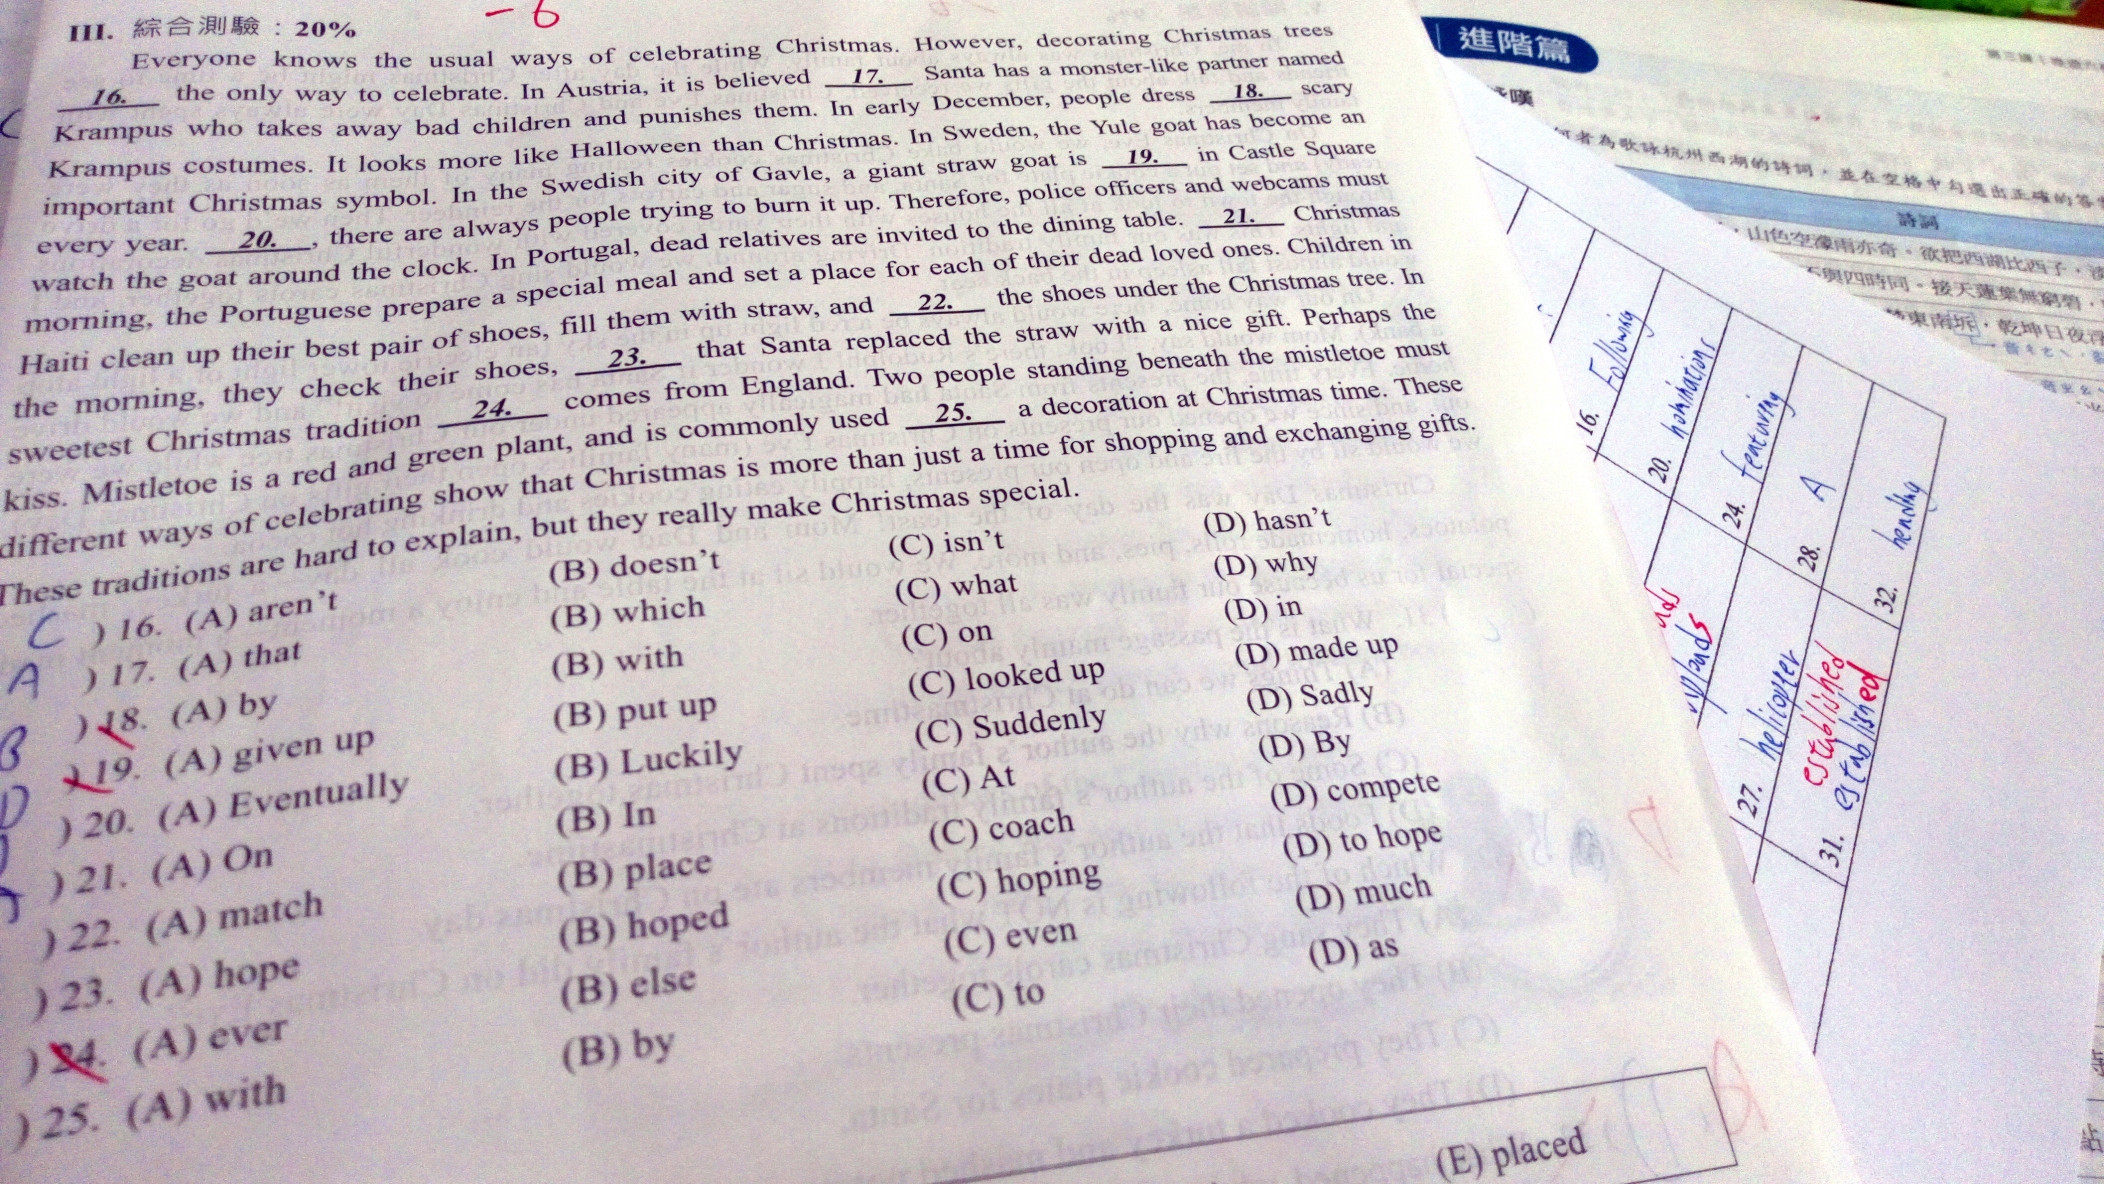 -6
III. 綜合測驗：20%
Everyone knows the usual ways of celebrating Christmas. However, decorating Christmas trees
16. the only way to celebrate. In Austria, it is believed 17. Santa has a monster-like partner named
Krampus who takes away bad children and punishes them. In early December, people dress 18. scary
Krampus costumes. It looks more like Halloween than Christmas. In Sweden, the Yule goat has become an
important Christmas symbol. In the Swedish city of Gavle, a giant straw goat is 19. in Castle Square
every year. 20. , there are always people trying to burn it up. Therefore, police officers and webcams must
watch the goat around the clock. In Portugal, dead relatives are invited to the dining table. 21. Christmas
morning, the Portuguese prepare a special meal and set a place for each of their dead loved ones. Children in
Haiti clean up their best pair of shoes, fill them with straw, and 22. the shoes under the Christmas tree. In
the morning, they check their shoes, 23. that Santa replaced the straw with a nice gift. Perhaps the
sweetest Christmas tradition 24. comes from England. Two people standing beneath the mistletoe must
kiss. Mistletoe is a red and green plant, and is commonly used 25. a decoration at Christmas time. These
different ways of celebrating show that Christmas is more than just a time for shopping and exchanging gifts.
These traditions are hard to explain, but they really make Christmas special.
C ) 16. (A) aren't (B) doesn't (C) isn't (D) hasn't
A ) 17. (A) that (B) which (C) what (D) why
B ) 18. (A) by (B) with (C) on (D) in
D ) 19. (A) given up (B) put up (C) looked up (D) made up
) 20. (A) Eventually (B) Luckily (C) Suddenly (D) Sadly
) 21. (A) On (B) In (C) At (D) By
) 22. (A) match (B) place (C) coach (D) compete
) 23. (A) hope (B) hoped (C) hoping (D) to hope
) 24. (A) ever (B) else (C) even (D) much
) 25. (A) with (B) by (C) to (D) as
(E) placed
進階篇
何者為歌詠杭州西湖的詩詞，並在空格中勾選出正確的答
詩詞
山色空濛雨亦奇。欲把西湖比西子，
不與四時同。接天蓮葉無窮碧，
東南坼，乾坤日夜浮
16. Following
20. nominations
24. featuring
28. A
32. heading
27. helicopter
31. established
established